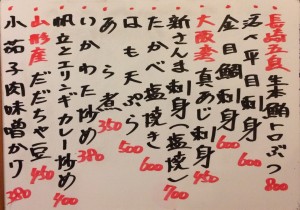 長崎五島 生本鮪トロぶつ 800
活〆平目刺身 600
金目鯛刺身 600
大阪産 真あじ刺身 450
新さんま刺身 塩焼し 700
たかべ塩焼 600
はも天ぷら 500
あら煮 350
いかわた炒め 380
帆立とエリンギカレー炒め 400
山形産 だだちゃ豆 450
小茄子肉味噌かり 380